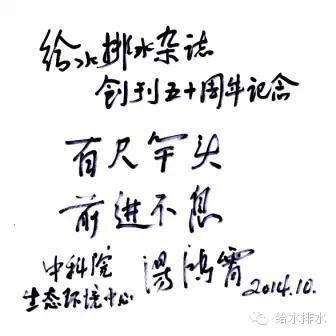 给水排水杂志
创刊五十周年记念
百尺竿头
前进不息
中科院
生态环境中心
汤鸿霄
2014.10.
给水排水